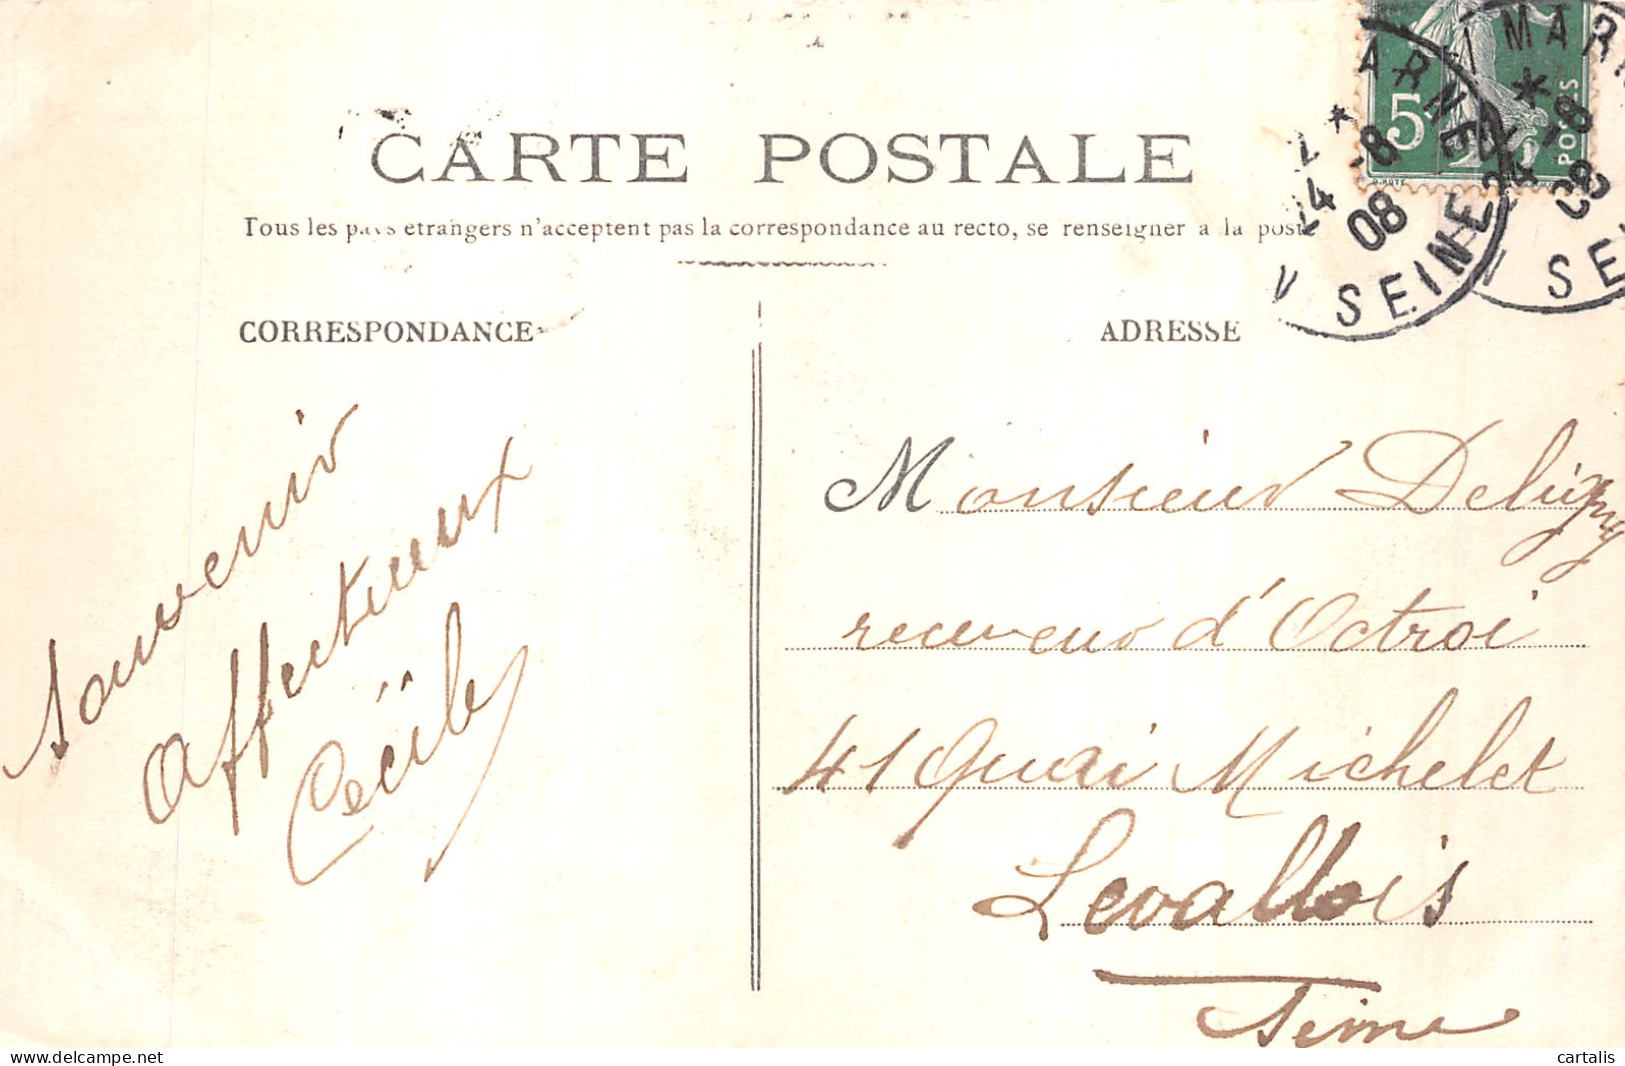 CARTE POSTALE
Tous les pays etrangers n'acceptent pas la correspondance au recto, se renseigner a la poste
CORRESPONDANCE
ADRESSE
Souvenir
Affectueux
Cécile
Monsieur Deligny
receveur d'Octroi
41 Quai Michelet
Levallois
Seine
5
POSTES
MARNE
24 -8
08
SEINE
MAR
24 -8
08
SE
cartalis